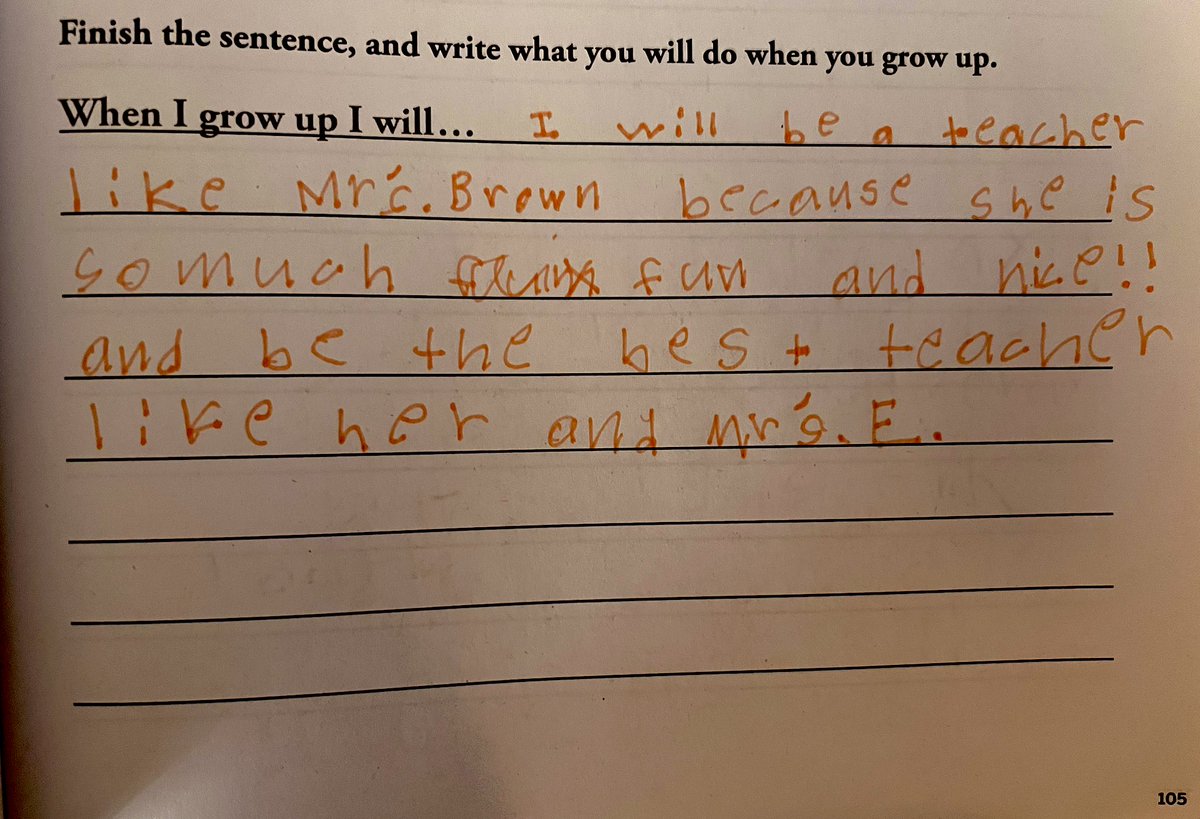 Finish the sentence, and write what you will do when you grow up.
When I grow up I will... I will be a teacher
like Mr's. Brown because she is
somuch fun and nice!!
and be the best teacher
like her and Mr's. E.
105